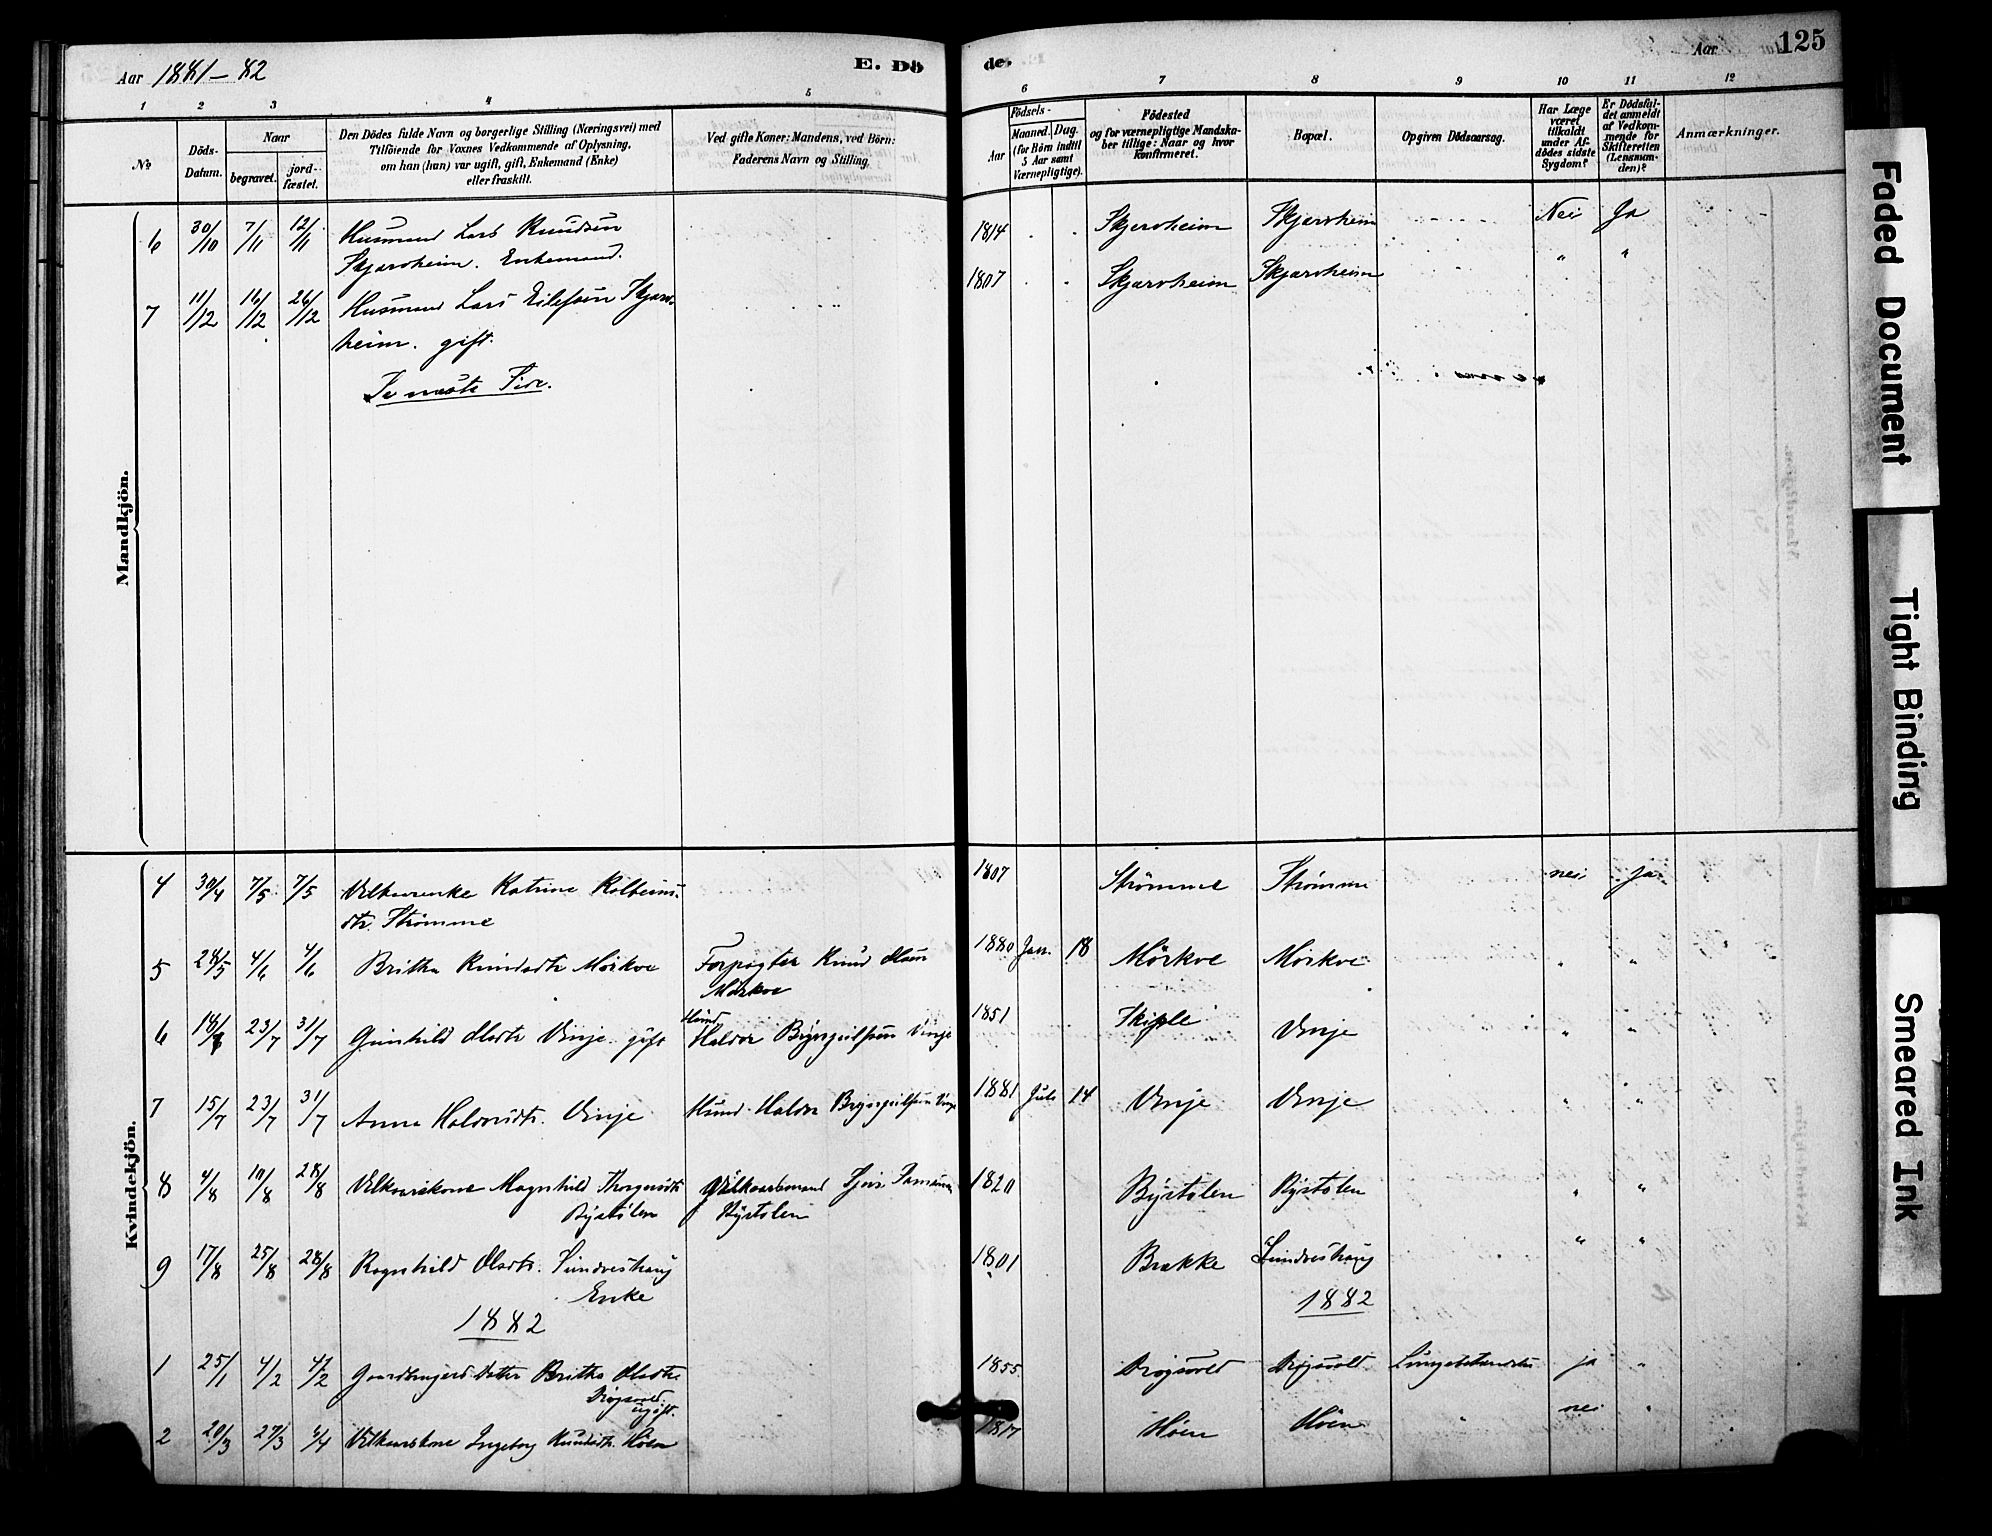 Aar 1881-82
E. Dö
de.
Aar
125
1 2 3 4 5
6 7 8 9 10 11 12
No.
Döds-
Datum.
Naar
begravet.
jord-
fæstet.
Den Dödes fulde Navn og borgerlige Stilling (Næringsvei) med
Tilföiende for Voxnes Vedkommende af Oplysning,
om han (hun) var ugift, gift, Enkemand (Enke)
eller fraskilt.
Ved gifte Koner: Mandens, ved Börn:
Faderens Navn og Stilling.
Födsels-
Aar
Maaned.
Dag.
(for Börn indtil
5 Aar samt
Værnepligtige).
Födested
og for værnepligtige Mandska-
ber tillige: Naar og hvor
konfirmeret.
Bopæl.
Opgiven Dödsaarsag.
Har Læge
været
tilkaldt
under Af-
dödes sidste
Sygdom?
Er Dödsfal-
det anmeldt
af Vedkom-
mende for
Skifteretten
(Lensman-
den)?
Anmærkninger.
Mandkjön.
6 30/10 7/11 12/11 Husmand Lars Knudsen
Skjærvheim. Enkemand.
1814 Skjervheim Skjærvheim Nei Ja
7 11/12 16/12 26/12 Husmand Lars Eilefsen Skjærv-
heim. gift.
1807 Skjærvheim Skjærvheim " "
Se næste Side.
Kvindekjön.
4 30/4 7/5 7/5 Vilkaarenke Katrine Kolbeins-
dtr. Strömme
1807 Strömme Strömme nei ja
5 28/5 4/6 4/6 Britha Knudsdtr Mörkve Forpagter Knud Mörkve
1880 Jan. 18 Mörkve Mörkve " "
6 18/ 23/7 31/7 Gunhild Olsdtr Vinje gift Haldor Brynjulfsen Vinje
1851 Skiple Vinje " "
7 15/7 23/7 31/7 Anna Haldorsdtr. Vinje Haldor Brynjulfsen Vinje
1881 Juli 14 Vinje Vinje " "
8 4/8 10/8 28/8 Vilkaarskone Magnhild Thorgersdtr
Byrstölen
Vilkaarsmand
Byrstölen
1820 Byrstölen Byrstölen " "
9 17/8 25/8 28/8 Ragnhild Olsdtr. Sundveshaug
Enke
1801 Brække Sundveshaug " "
1882
1882
1 25/1 4/2 4/2 Gaardbrugerd Datter Britha Olsdtr.
Drøgsvold
ugift.
1855 Drøgsvold Drøgsvold Lungebetændelse ja "
2 20/3 27/3 6/4 Vilkaarskone Ingeborg Knudsdtr. Höen
1817 Höen Höen " nei "
Faded Document
Tight Binding
Smeared Ink